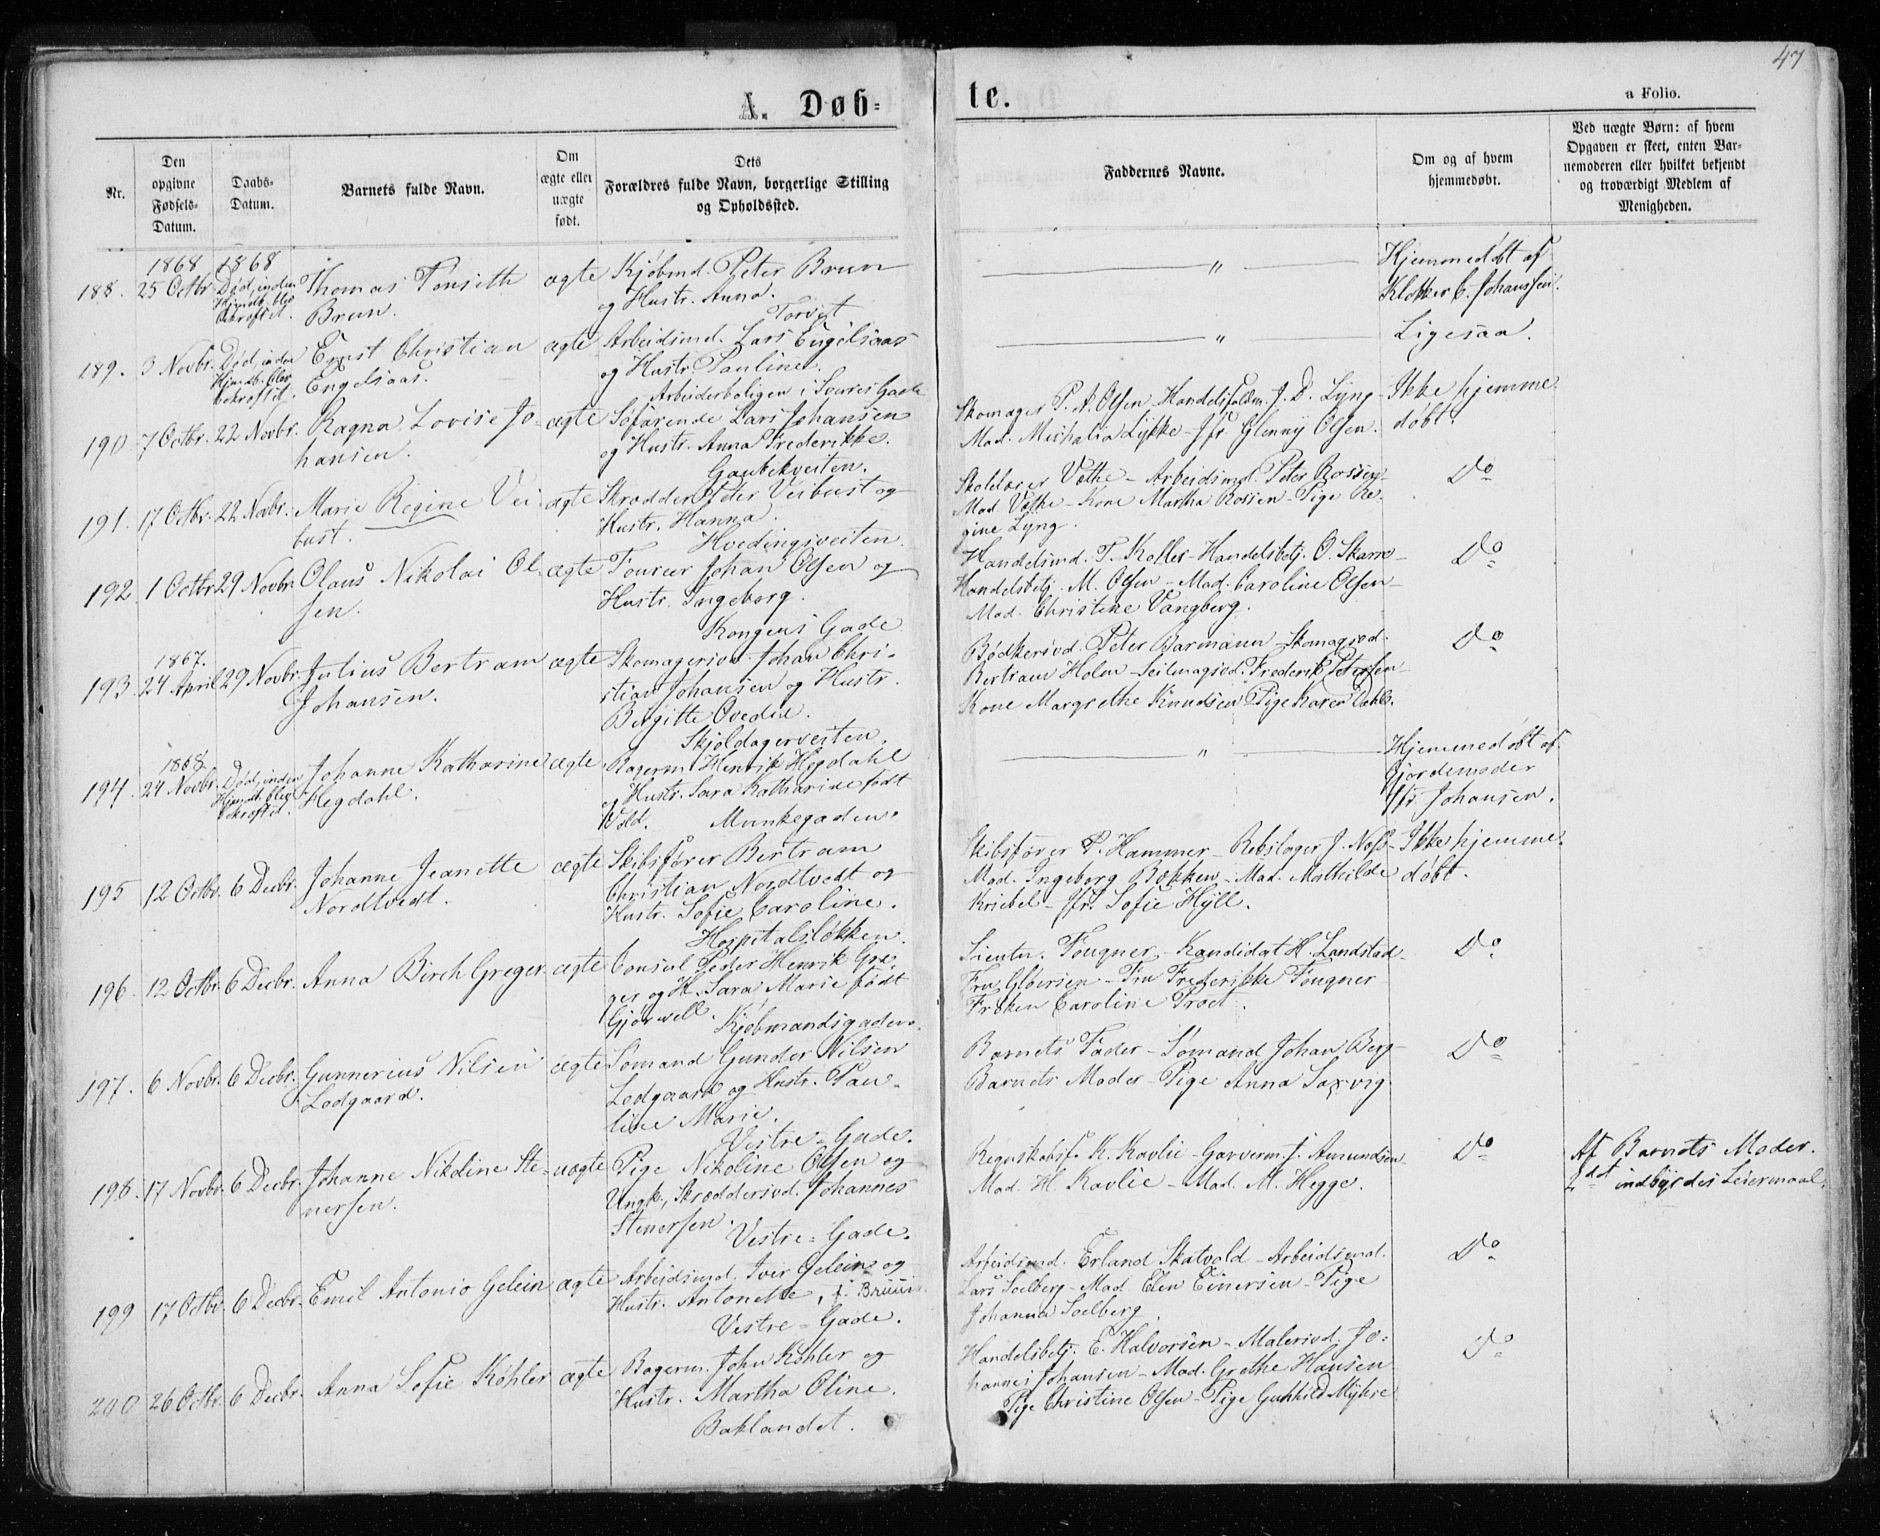 47
A. Døb-
te.
a Folio.
Nr.
Den opgivne Fødsels-Datum.
Daabs-Datum.
Barnets fulde Navn.
Om ægte eller uægte født.
Dets Forældres fulde Navn, borgerlige Stilling og Opholdssted.
Faddernes Navne.
Om og af hvem hjemmedøbt.
Ved uægte Børn: af hvem Opgaven er skeet, enten Barnemoderen eller hvilket bekjendt og troværdigt Medlem af Menigheden.
1868 1868
188. 25 Octbr. Død, inden Hjemdb. blev bekræftet. Thomas Fonseth Brun. ægte Kjøbmd. Peter Brun og Hustr. Anna. Torvet " Hjemmedøbt af Klokker C. Johanssen.
189. 3 Novbr. Død, inden Hjemdb. blev bekræftet. Ernst Christian Engelsaas. ægte Arbeidsmd. Lars Engelsaas og Hustr. Pauline. Arbeiderboligen i Sverres Gade " Ligesaa.
190. 7 Octbr. 22 Novbr. Ragna Lovise Johansen. ægte Søfarende Lars Johansen og Hustr. Anna Frederikke. Gaubekveiten. Skomager P. A. Olsen - Handelsfuldm. J. D. Lyng - Mad. Michalia Lykke - Jfr. Glenny Olsen. Ikke hjemmedøbt.
191. 17 Octbr. 22 Novbr. Marie Regine Veibust. ægte Skrædder Peter Veibust og Hustr. Hanna. Hvedingsveiten. Skolelærer Væthe - Arbeidsmd. Peter Rossen - Mad Væthe - Kone Martha Rossen - Pige Regine Lyng. Do
192. 1 Octbr. 29 Novbr. Olaus Nikolai Olsen. ægte Fourer Johan Olsen og Hustr. Ingeborg. Kongens Gade Handelsmd. T. Koller - Handelsbetj. O. Skarre - Handelsbetj. M. Olsen - Mad. Caroline Olsen - Mad. Christine Vangberg. Do
1867.
193. 24 April 29 Novbr. Julius Bertram Johansen. ægte Skomagersvd. Johan Christian Johansen og Hustr. Bergitte Ovedie. Skjoldagerveiten. Bødkersvd. Peter Barmann - Skomagsvd. Bertram Holm - Seilmagsvd. Frederik Petersen - Kone Margrethe Knudsen Pige Karen Dahl. Do
1868.
194. 24 Novbr. Død, inden Hjemdb. blev bekræftet. Johanne Katharine Hegdahl. ægte Bagerm. Henrik Hegdahl og Hustr. Sara Katharine født Vold. Munkegaden. " Hjemmedøbt af Gjordemoder Jfr. Johansen.
195 12 Octbr. 6 Decbr. Johanne Jeanette Nordtvedt. ægte Skibsfører Bertram Christian Nordtvedt og Hustr. Sofie Caroline. Hospitalsløkken. Skibsfører P. Hammer - Rebslager J. Næss - Mad. Ingeborg Bækken - Mad. Mathilde Kriebel - Jfr. Sofie Hyll. Ikke hjemmedøbt.
196. 12 Octbr. 6 Decbr. Anna Birch Greger. ægte Consul Peder Henrik Greger og H. Sara Marie født Gjørwell. Kjøbmandsgaden. Lieutn. Fougner - Kandidat H. Landstad - Fru Gløersen - Fru Frederikke Fougner Frøken Caroline Troet. Do
197. 6 Novbr. 6 Decbr. Gunnerius Nilsen Lodgaard. ægte Sømand Gunder Nilsen Lodgaard og Hustr. Pauline Marie. Vestre-Gade. Barnets Fader - Sømand Johan Berg - Barnets Moder - Pige Anna Saxvig. Do
198. 17 Novbr. 6 Decbr. Johanne Nikoline Stenersen. uægte Pige Nikoline Olsen og Ungk., Skræddersvd. Johannes Stenersen. Vestre-Gade. Regnskabsf. K. Kavlie - Garverm. J. Amundsen - Mad. H. Kavlie - Mad. M. Hegge. Do Af Barnets Moder. 2det indbyrdes Leiermaal.
199 17 Octbr. 6 Decbr. Emil Antonio Gelein ægte Arbeidsmd. Iver Gelein og Hustr. Antonette, f. Bruun. Vestre-Gade. Arbeidsmd. Erland Skatvold - Arbeidsmd. Lars Soelberg - Mad Elen Einersen - Pige Johanna Soelberg. Do
200 26 Octbr. 6 Decbr. Anna Sofie Køhler ægte Bagerm. John Køhler og Hustr. Martha Oline. Baklandet. Handelsbetj. E. Halvorsen - Malersvd. Johannes Johansen - Mad. Grethe Hansen Pige Christine Olsen - Pige Gunhild Myhre Do